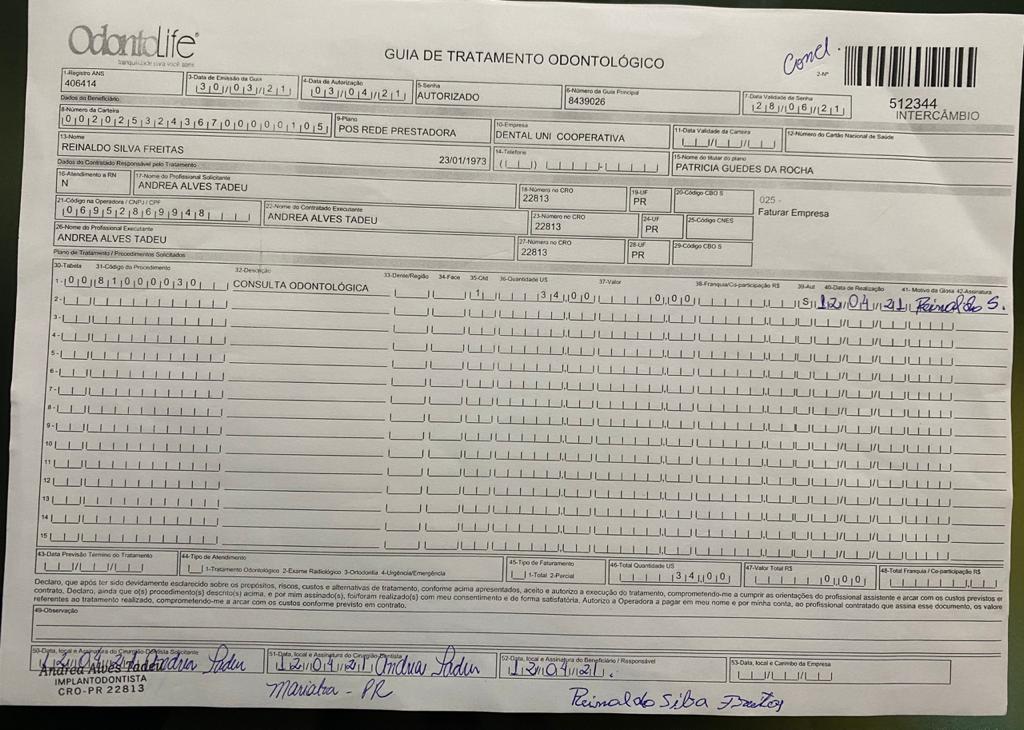 OdontoLife®
tranquilidade para você sorrir
GUIA DE TRATAMENTO ODONTOLÓGICO
Concl.
2-Nº
512344
INTERCÂMBIO
1-Registro ANS
406414
3-Data de Emissão da Guia
30/03/21
4-Data de Autorização
03/04/21
5-Senha
AUTORIZADO
6-Número da Guia Principal
8439026
7-Data Validade da Senha
28/06/21
Dados do Beneficiário
8-Número da Carteira
00202532436700000105
9-Plano
POS REDE PRESTADORA
10-Empresa
DENTAL UNI COOPERATIVA
11-Data Validade da Carteira
12-Número do Cartão Nacional de Saúde
13-Nome
REINALDO SILVA FREITAS
23/01/1973
14-Telefone
15-Nome do titular do plano
PATRICIA GUEDES DA ROCHA
Dados do Contratado Responsável pelo Tratamento
16-Atendimento a RN
N
17-Nome do Profissional Solicitante
ANDREA ALVES TADEU
18-Número no CRO
22813
19-UF
PR
20-Código CBO S
025 -
Faturar Empresa
21-Código na Operadora / CNPJ / CPF
06952869948
22-Nome do Contratado Executante
ANDREA ALVES TADEU
23-Número no CRO
22813
24-UF
PR
25-Código CNES
26-Nome do Profissional Executante
ANDREA ALVES TADEU
27-Número no CRO
22813
28-UF
PR
29-Código CBO S
Plano de Tratamento / Procedimentos Solicitados
30-Tabela 31-Código do Procedimento 32-Descrição 33-Dente/Região 34-Face 35-Qtd 36-Quantidade US 37-Valor 38-Franquia/Co-participação R$ 39-Aut 40-Data de Realização 41- Motivo da Glosa 42-Assinatura
1- 00 81000030 CONSULTA ODONTOLÓGICA 1 34,00 0,00 S 12/04/21 Reinaldo S.
2-
3-
4-
5-
6-
7-
8-
9-
10
11
12
13
14
15
43-Data Previsão Término do Tratamento
44-Tipo de Atendimento
1-Tratamento Odontológico 2-Exame Radiológico 3-Ortodontia 4-Urgência/Emergência
45-Tipo de Faturamento
1-Total 2-Parcial
46-Total Quantidade US
34,00
47-Valor Total R$
0,00
48-Total Franquia / Co-participação R$
Declaro, que após ter sido devidamente esclarecido sobre os propósitos, riscos, custos e alternativas de tratamento, conforme acima apresentados, aceito e autorizo a execução do tratamento, comprometendo-me a cumprir as orientações do profissional assistente e arcar com os custos previstos em
contrato. Declaro, ainda que o(s) procedimento(s) descrito(s) acima, e por mim assinado(s), foi/foram realizado(s) com meu consentimento e de forma satisfatória. Autorizo a Operadora a pagar em meu nome e por minha conta, ao profissional contratado que assina esse documento, os valores
referentes ao tratamento realizado, comprometendo-me a arcar com os custos conforme previsto em contrato.
49-Observação
50-Data, local e Assinatura do Cirurgião-Dentista Solicitante
12/04/21 Andrea Tadeu
Andrea Alves Tadeu
IMPLANTODONTISTA
CRO-PR 22813
51-Data, local e Assinatura do Cirurgião-Dentista
12/04/21 Andrea Tadeu
Marialva - PR
52-Data, local e Assinatura do Beneficiário / Responsável
12/04/21.
Reinaldo Silba Freitas
53-Data, local e Carimbo da Empresa